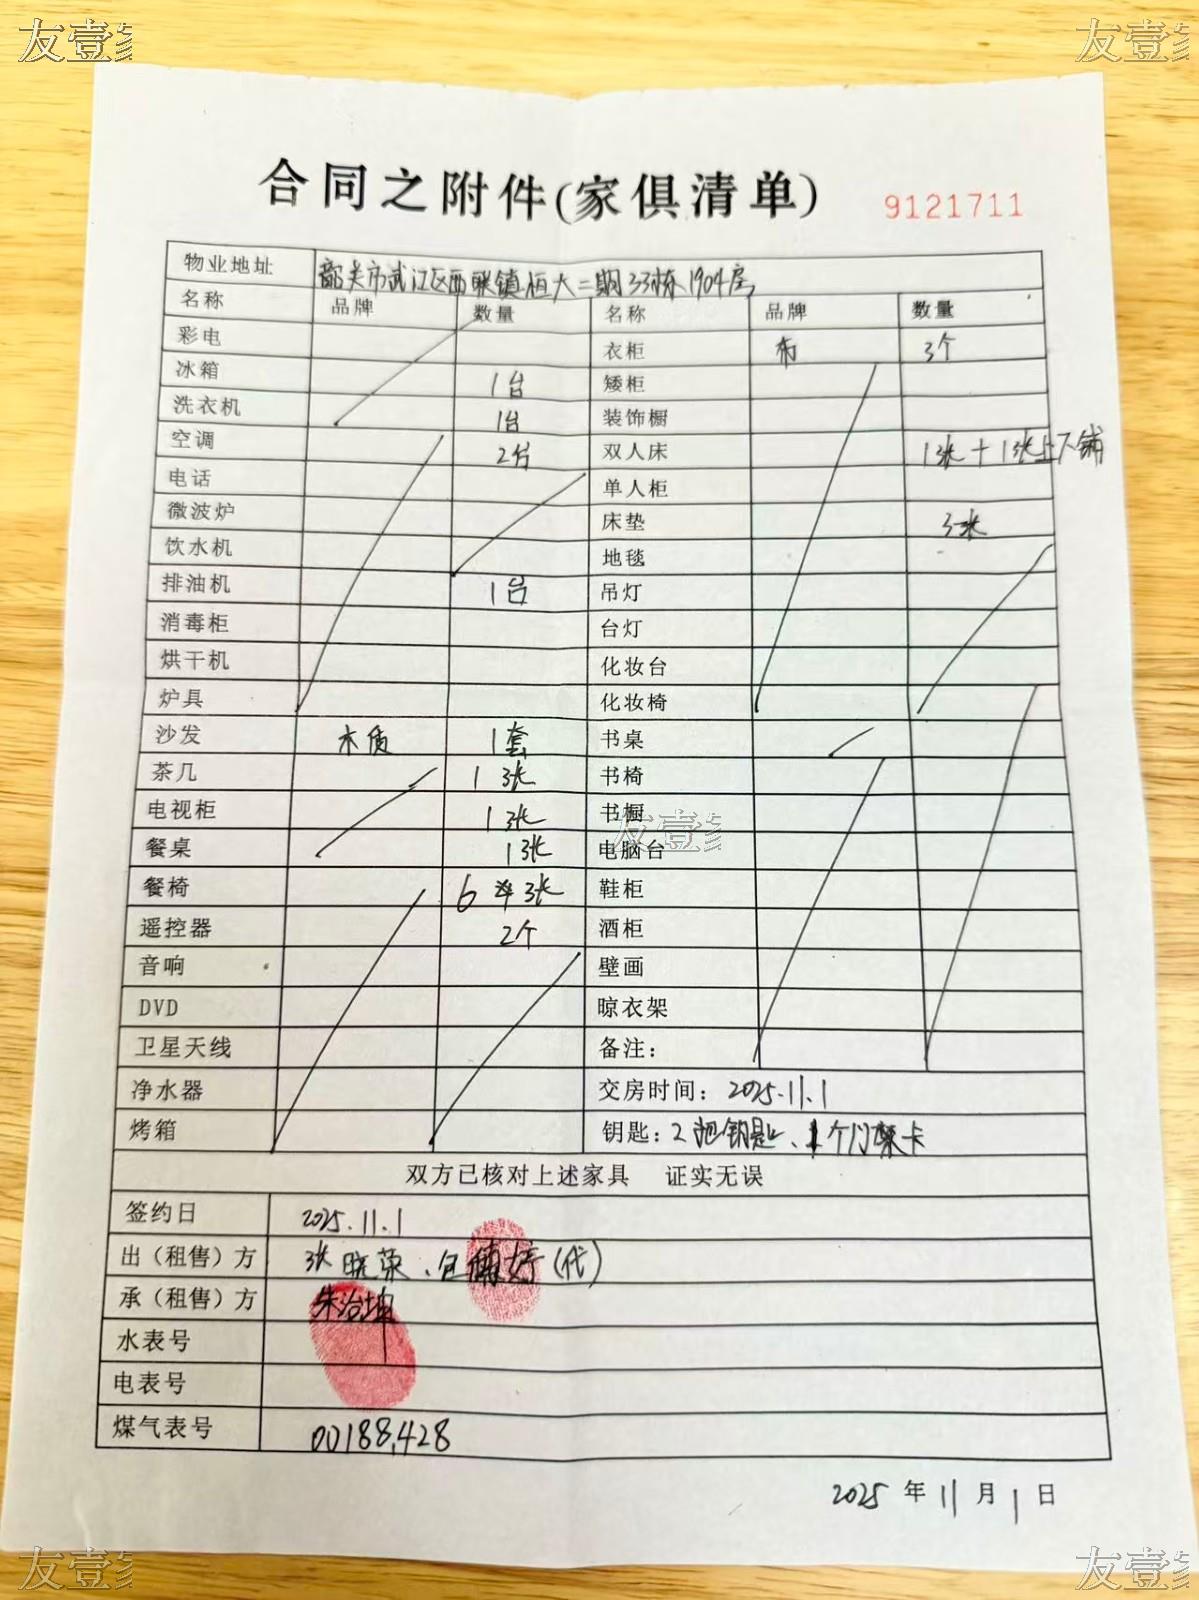 友壹家 友壹家
合同之附件(家俱清单) 9121711
物业地址 韶关市武江区西联镇恒大二期33栋1904房
名称 品牌 数量 名称 品牌 数量
彩电 衣柜 布 3个
冰箱 1台 矮柜
洗衣机 1台 装饰橱
空调 2台 双人床 1张+1张上下铺
电话 单人柜
微波炉 床垫 3张
饮水机 地毯
排油机 1台 吊灯
消毒柜 台灯
烘干机 化妆台
炉具 化妆椅
沙发 木质 1套 书桌
茶几 1张 书椅
电视柜 1张 书橱
友壹家
餐桌 1张 电脑台
餐椅 6 张 鞋柜
遥控器 2个 酒柜
音响 壁画
DVD 晾衣架
卫星天线 备注:
净水器 交房时间: 2025.11.1
烤箱 钥匙: 2把钥匙、1个门禁卡
双方已核对上述家具 证实无误
签约日 2025.11.1
出（租售）方 张晓荣、包 婷(代)
承（租售）方 朱治坤
水表号
电表号
煤气表号 00188,428
2025 年 11 月 1 日
友壹家 友壹家